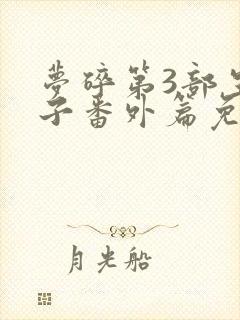 夢碎第3部
子番外篇免
月光船